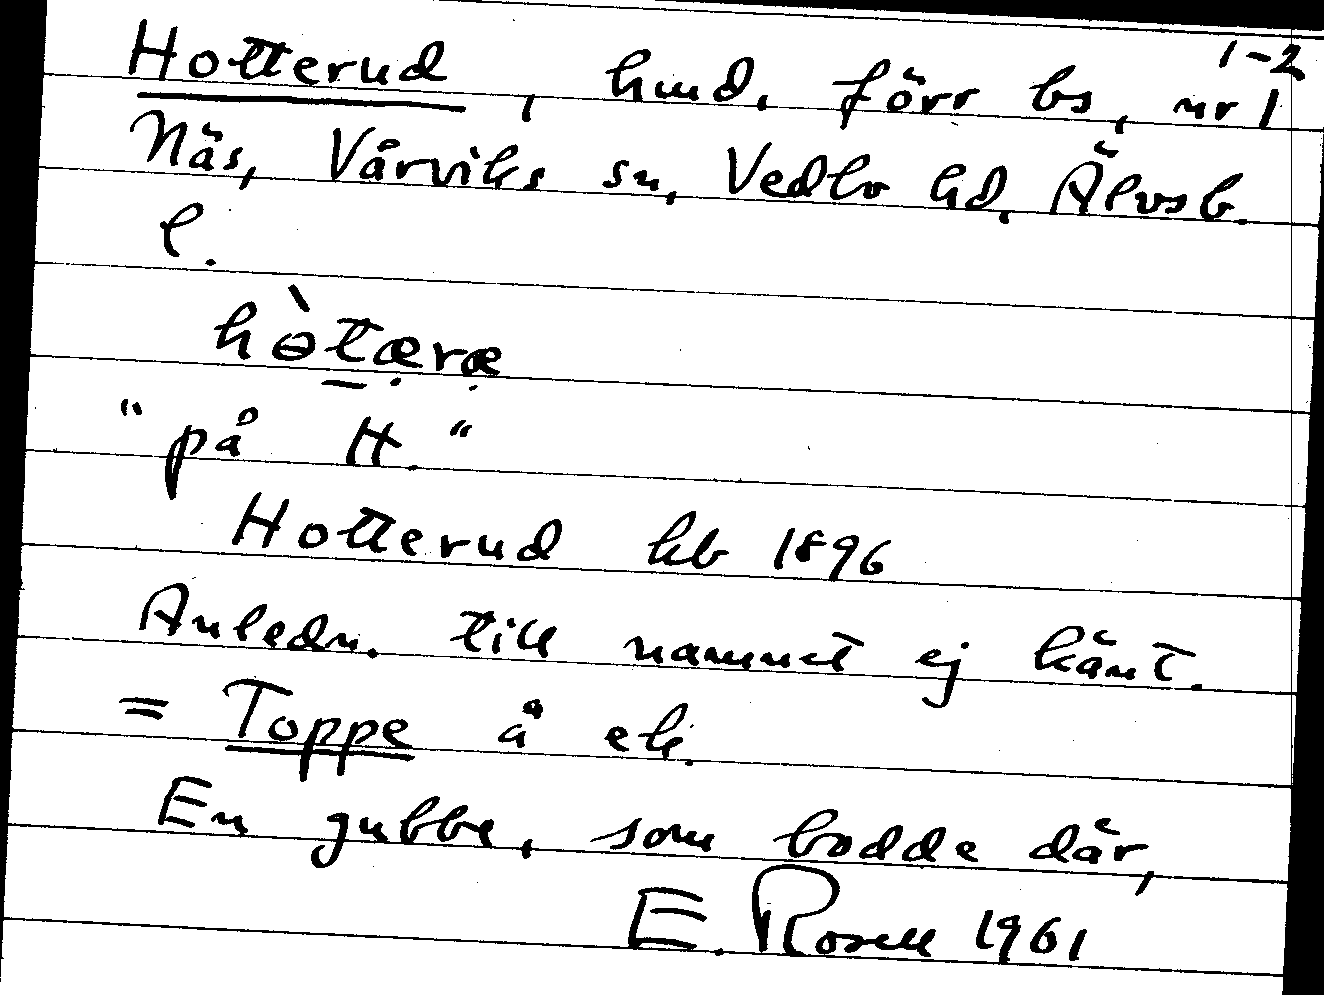 1-2
Hotterud, hmd. förr bs, nr 1
Näs, Vårviks sn, Vedbo hd, Älvsb.
l.
hòtæræ
"på H."
Hotterud kb 1896
Anledn. till namnet ej känt.
= Toppe å ek.
En gubbe, som bodde där,
E. Rosell 1961